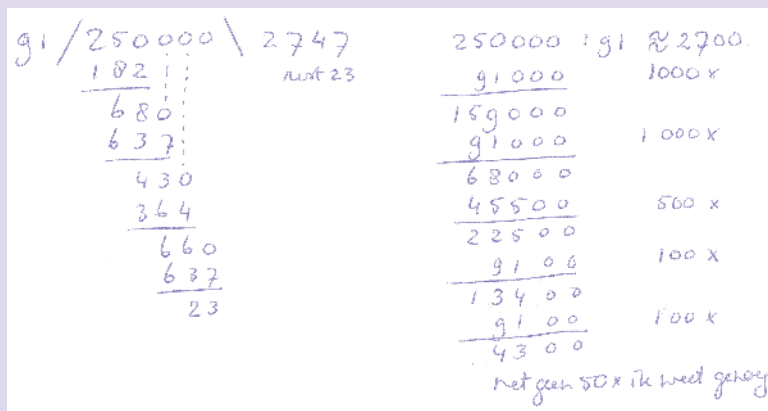 91 / 250000 \ 2747
182
rest 23
680
637
430
364
660
637
23
250000 : 91 ≈ 2700.
91000 1000 x
159000
91000 1000 x
68000
45500 500 x
22500
9100 100 x
13400
9100 100 x
4300
net geen 50x ik weet genoeg